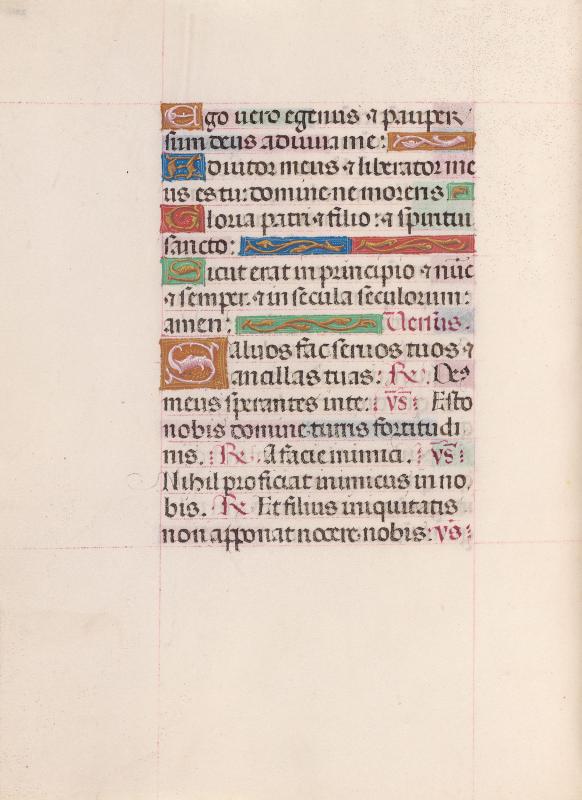 Ego uero egenus ⁊ pauper
sum deus adiuua me:
Adiutor meus ⁊ liberator me
us es tu: domine ne moreris
Gloria patri ⁊ filio: ⁊ spiritui
sancto:
Sicut erat in principio ⁊ nūc
⁊ semper. ⁊ in secula seculorum:
amen: Versus.
Saluos fac seruos tuos ⁊
ancillas tuas: ℟. Deꝰ
meus sperantes in te: v̄s: Esto
nobis domine turris fortitudi
nis. : ℟. A facie inimici. : v̄s:
Nihil proficiat inimicus in no
bis. ℟ Et filius iniquitatis
non apponat nocere nobis: v̄s: